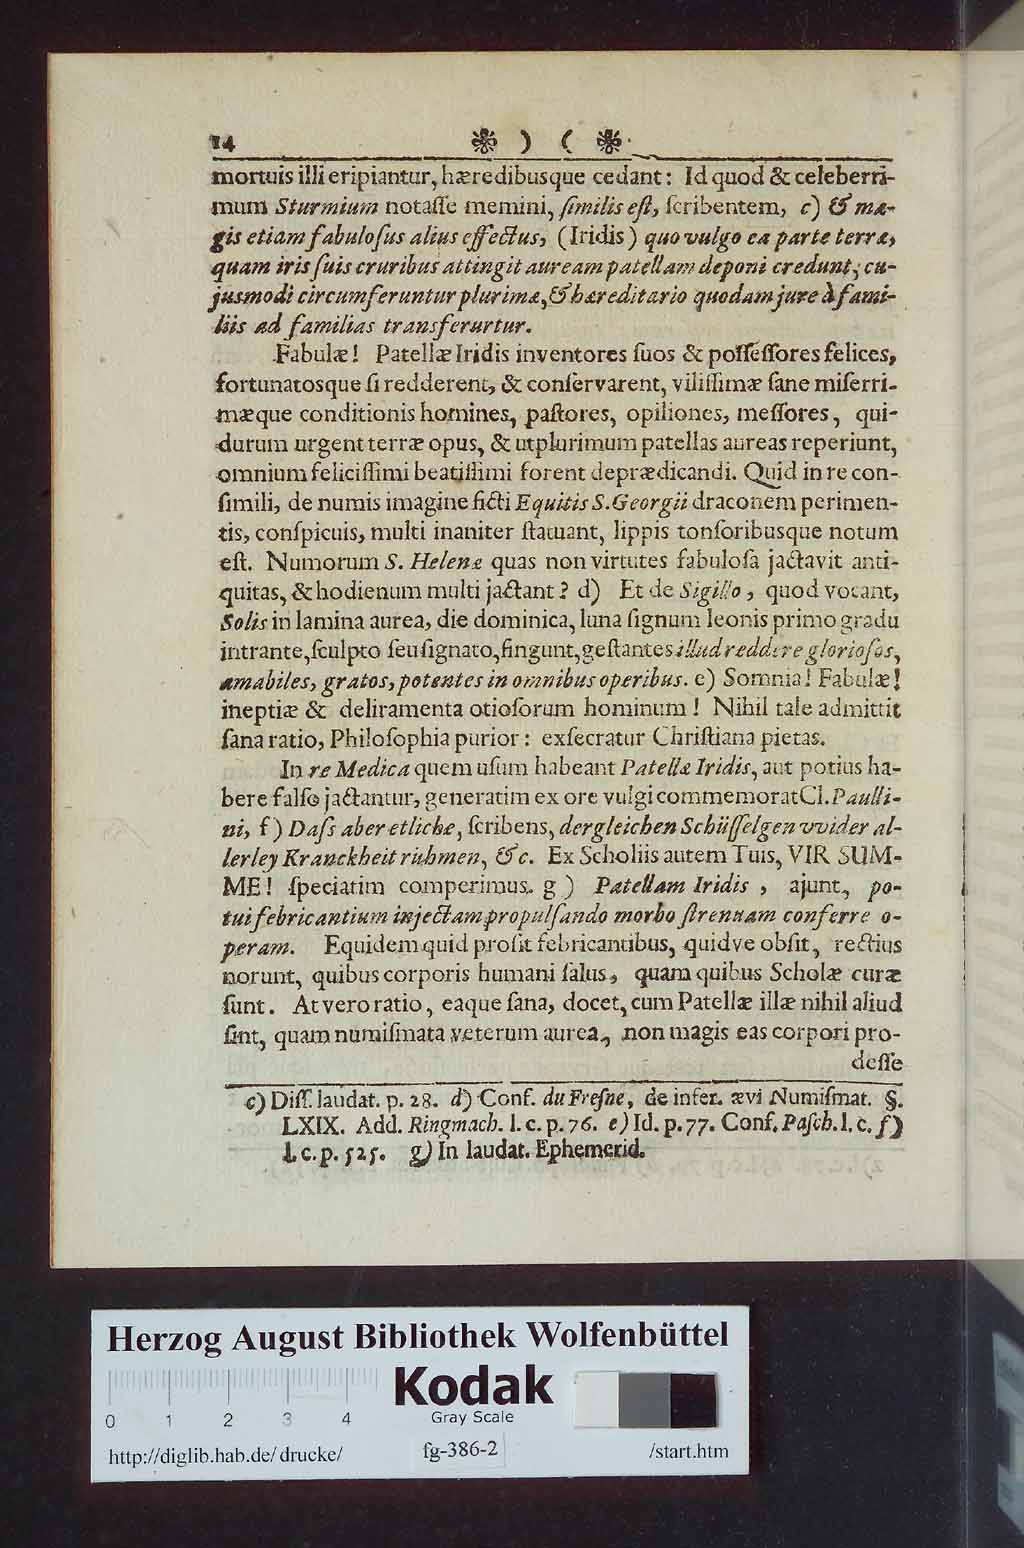 14 ❀ ) ( ❀
mortuis illi eripiantur, hæredibusque cedant: Id quod & celeberri-
mum Sturmium notaſſe memini, ſimilis eſt, ſcribentem, c) & ma-
gis etiam fabuloſus alius effectus, (Iridis) quo vulgo ea parte terræ,
quam iris ſuis cruribus attingit auream patellam deponi credunt, cu-
jusmodi circumferuntur plurimæ, & hæreditario quodam jure à fami-
liis ad familias transferurtur.
Fabulæ! Patellæ Iridis inventores ſuos & poſſeſſores felices,
fortunatosque ſi redderent, & conſervarent, viliſſimæ ſane miſerri-
mæque conditionis homines, paſtores, opiliones, meſſores, qui-
durum urgent terræ opus, & utplurimum patellas aureas reperiunt,
omnium feliciſſimi beatiſſimi forent deprædicandi. Quid in re con-
ſimili, de numis imagine ficti Equitis S. Georgii draconem perimen-
tis, conſpicuis, multi inaniter ſtatuant, lippis tonſoribusque notum
eſt. Numorum S. Helenæ quas non virtutes fabuloſa jactavit anti-
quitas, & hodienum multi jactant? d) Et de Sigillo, quod vocant,
Solis in lamina aurea, die dominica, luna ſignum leonis primo gradu
intrante, ſculpto ſeu ſignato, fingunt, geſtantes illud reddere glorioſos,
amabiles, gratos, potentes in omnibus operibus. e) Somnia! Fabulæ!
ineptiæ & deliramenta otioſorum hominum! Nihil tale admittit
ſana ratio, Philoſophia purior: exſecratur Chriſtiana pietas.
In re Medica quem uſum habeant Patellæ Iridis, aut potius ha-
bere falſo jactantur, generatim ex ore vulgi commemorat Cl. Paulli-
ni, f) Daſs aber etliche, ſcribens, dergleichen Schüſſelgen vvider al-
lerley Kranckheit rühmen, &c. Ex Scholiis autem Tuis, VIR SUM-
ME! ſpeciatim comperimus. g) Patellam Iridis, ajunt, po-
tui febricantium injectam propulſando morbo ſtrenuam conferre o-
peram. Equidem quid proſit febricantibus, quidve obſit, rectius
norunt, quibus corporis humani ſalus, quam quibus Scholæ curæ
ſunt. At vero ratio, eaque ſana, docet, cum Patellæ illæ nihil aliud
ſint, quam numiſmata veterum aurea, non magis eas corpori pro-
deſſe
c) Diſſ. laudat. p. 28. d) Conf. du Freſne, de infer. ævi Numiſmat. §.
LXIX. Add. Ringmach. l. c. p. 76. e) Id. p. 77. Conf. Paſch. l. c. f)
l. c. p. 525. g) In laudat. Ephemerid.
Herzog August Bibliothek Wolfenbüttel
Kodak
0 1 2 3 4 Gray Scale
http://diglib.hab.de/drucke/ fg-386-2 /start.htm